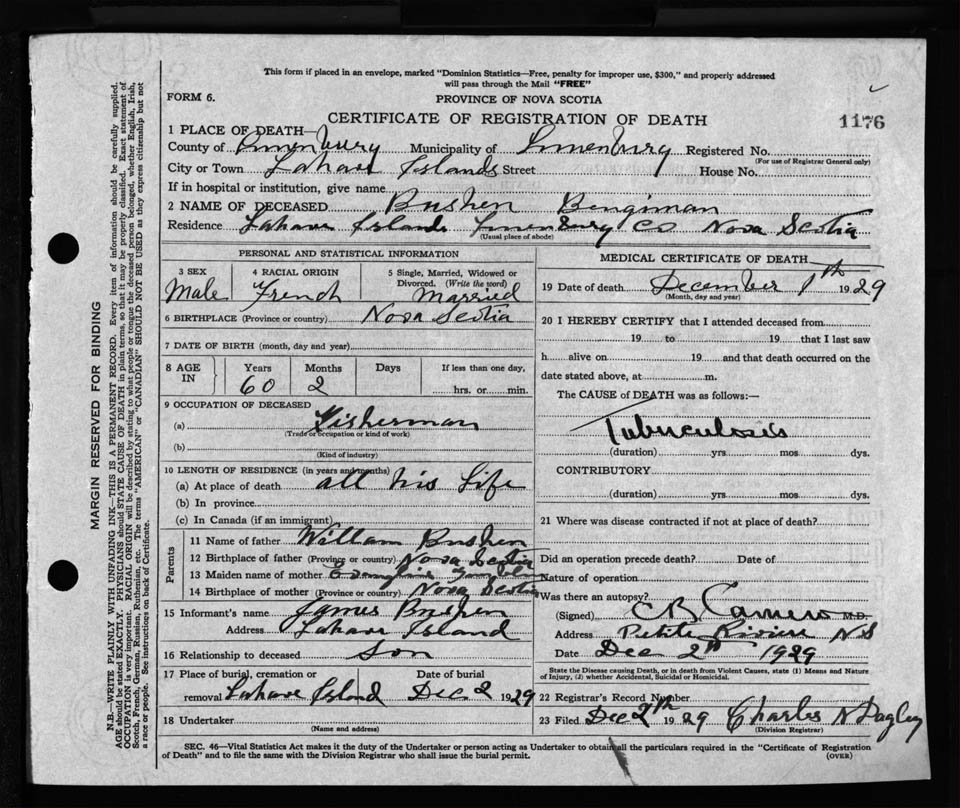 This form if placed in an envelope, marked "Dominion Statistics—Free, penalty for improper use, $300," and properly addressed
will pass through the Mail "FREE"
FORM 6.
PROVINCE OF NOVA SCOTIA
CERTIFICATE OF REGISTRATION OF DEATH
1176
1 PLACE OF DEATH—
County of Lunenburg Municipality of Lunenburg Registered No.
(For use of Registrar General only)
City or Town Lahave Islands Street House No.
If in hospital or institution, give name
2 NAME OF DECEASED Bushen Bengiman
Residence Lahave Islands Lunenburg Co Nova Scotia
(Usual place of abode)
PERSONAL AND STATISTICAL INFORMATION
3 SEX 4 RACIAL ORIGIN 5 Single, Married, Widowed or
Divorced. (Write the word)
Male French Married
6 BIRTHPLACE (Province or country) Nova Scotia
7 DATE OF BIRTH (month, day and year)
8 AGE IN Years Months Days If less than one day,
60 2 hrs. or min.
9 OCCUPATION OF DECEASED
(a) Fisherman
(Trade or occupation or kind of work)
(b)
(Kind of industry)
10 LENGTH OF RESIDENCE (in years and months)
(a) At place of death all his Life
(b) In province
(c) In Canada (if an immigrant)
Parents
11 Name of father William Bushen
12 Birthplace of father (Province or country) Nova Scotia
13 Maiden name of mother
14 Birthplace of mother (Province or country) Nova Scotia
15 Informant's name James Bushen
Address Lahave Island
16 Relationship to deceased son
17 Place of burial, cremation or removal Lahave Island Date of burial Dec 2 1929
18 Undertaker
(Name and address)
MEDICAL CERTIFICATE OF DEATH
19 Date of death December 1th 1929
(Month, day and year)
20 I HEREBY CERTIFY that I attended deceased from
19 to 19 that I last saw
h alive on 19 and that death occurred on the
date stated above, at m.
The CAUSE of DEATH was as follows:—
Tuberculosis
(duration) yrs mos dys.
CONTRIBUTORY
(duration) yrs mos dys.
21 Where was disease contracted if not at place of death?
Did an operation precede death? Date of
Nature of operation
Was there an autopsy?
(Signed) C B Cameron M.D.
Address Petite Riviere N S
Date Dec 2th 1929
State the Disease causing Death, or in death from Violent Causes, state (1) Means and Nature
of Injury, (2) whether Accidental, Suicidal or Homicidal.
22 Registrar's Record Number
23 Filed Dec 7th 1929 Charles N Dagley
(Division Registrar)
SEC. 46—Vital Statistics Act makes it the duty of the Undertaker or person acting as Undertaker to obtain all the particulars required in the "Certificate of Registration
of Death" and to file the same with the Division Registrar who shall issue the burial permit.
(OVER)
MARGIN RESERVED FOR BINDING
N.B.—WRITE PLAINLY WITH UNFADING INK—THIS IS A PERMANENT RECORD. Every item of information should be carefully supplied.
AGE should be stated EXACTLY. PHYSICIANS should STATE CAUSE OF DEATH in plain terms, so that it may be properly classified. Exact statement of
OCCUPATION is very important. RACIAL ORIGIN will be described by stating to what people or tongue the deceased person belonged, whether English, Irish,
Scotch, French, German, Russian, Ruthenian, etc. The terms "AMERICAN" or "CANADIAN" SHOULD NOT BE USED as they express citizenship but not
a race or people. See instructions on back of Certificate.